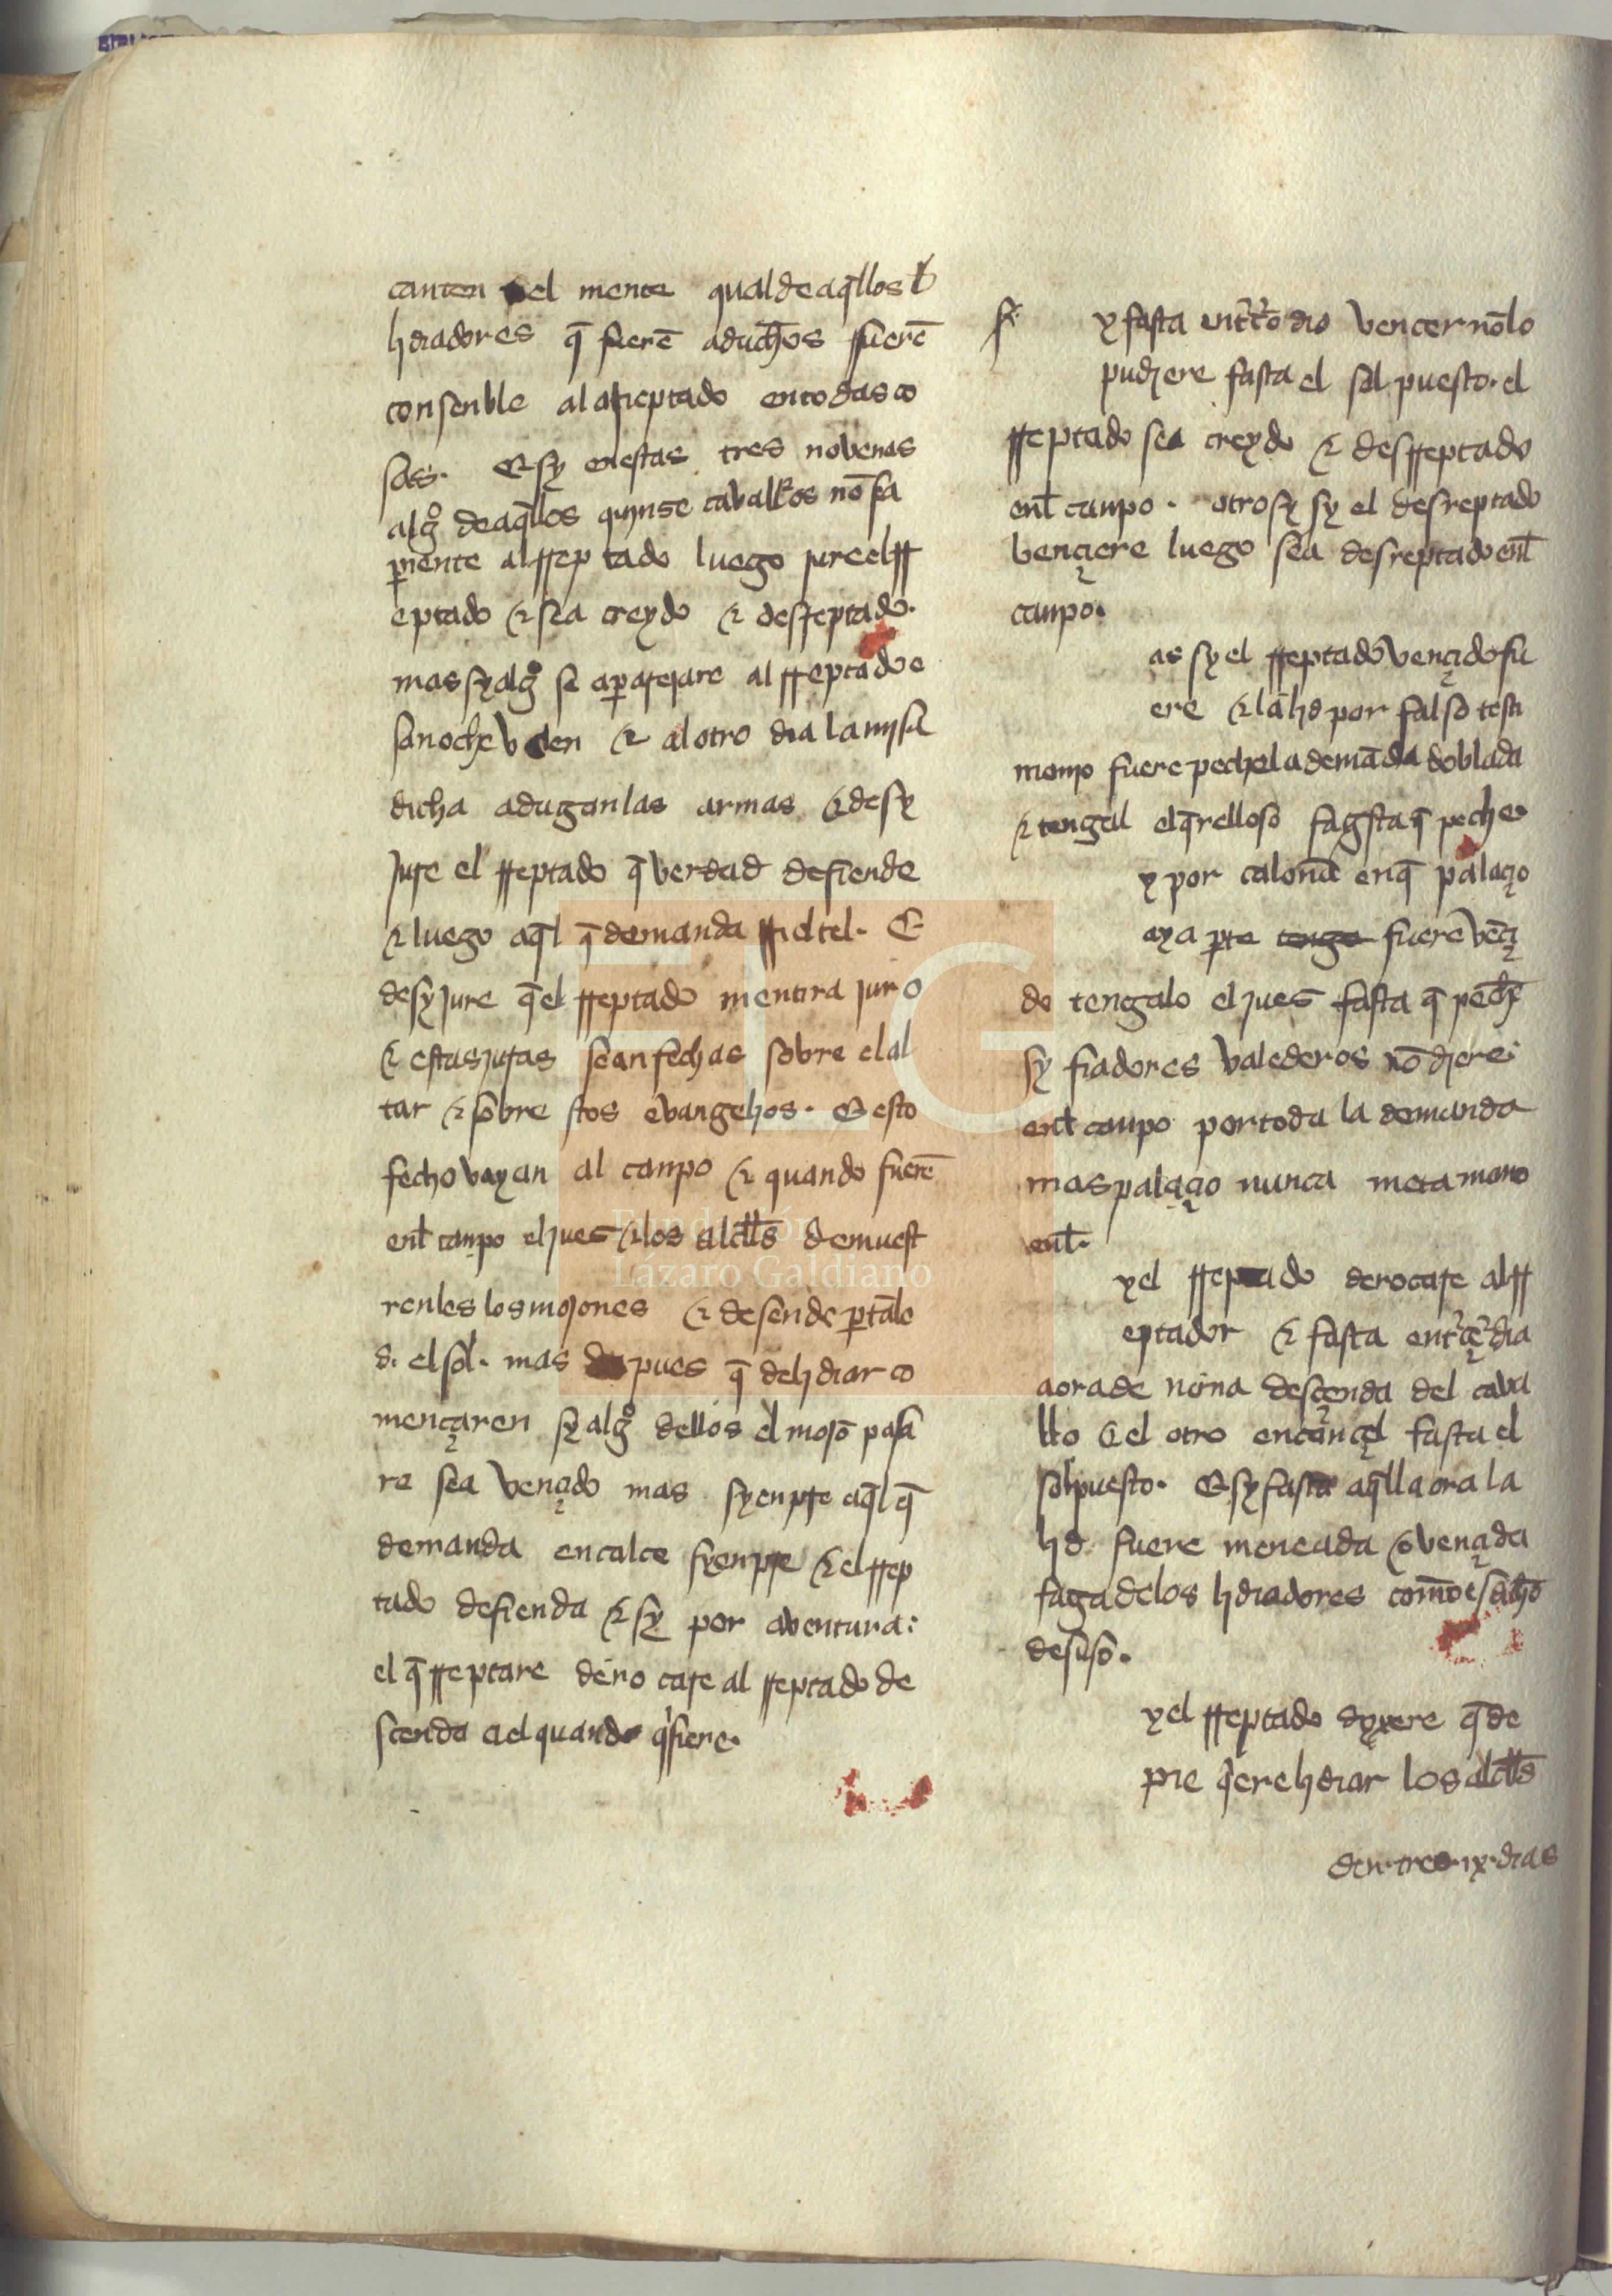 canten el mente qual de aq̃llos
lidiadores q̃ fuerẽ aduchos fuerẽ
consenble al rreptado en todas co
sas. Et sy en estas tres novenas
algº de aq̃llos quynse cavallos nõ sea
pariente al rrep tado luego jure el rr
eptado & sea creydo & desreptado.
mas sy algº se aparejare al rreptado e
sa noche velen & al otro dia la misa
dicha adugan las armas & desy
jure el rreptado q̃ verdad defiende
& luego aq̃l q̃ demanda rrieltel. E
desy jure q̃ el rreptado mentira juro
& estas juras sean fechas sobre el al
tar & sobre stos evangelios. E esto
fecho vayan al canpo & quando fuerẽ
enl canpo el jues & los alclls demuest
renles los mojones & desende partale
d. el sol. mas pues q̃ de lidiar co
mençaren sy algº dellos el mojõ pasa
re sea vençido mas syenpre aq̃l q̃
demanda encalce syenpre & el rrep
tado defienda & sy por aventura:
el q̃ rreptare derrocare al rreptado de
scenda a el quando q̃siere.
y fasta en tcº dia vencer nõ lo
pudiere fasta el sol puesto. el
rreptado sea creydo & desrreptado
enl canpo. otrosy sy el desreptado
vençiere luego sea desreptado enl
canpo.
as sy el rreptado vençido fu
ere & la lid por falso testi
monio fuere peche la demãda doblada
& tengal el q̃relloso fasta q̃ peche
y por calonã en q̃ palaçio
aya pte tenga fuere vẽçi
do tengalo el jues fasta q̃ peche
sy fiadores valederos nõ diere:
enl canpo por toda la demanda
mas palaçio nunca meta mano
enl.
y el rreptado derocare al rr
eptador & fasta en terçe dia
a ora de nona desçenda del cava
llo & el otro encançel fasta el
sol puesto. E sy fasta aq̃lla ora la
lid fuere meneada o vençida
faga de los lidiadores como es dicho
desuso.
y el rreptado dyxere q̃ de
pie q̃ere lidiar los alclls
den. tres. ix. dias
Fundación
Lázaro Galdiano